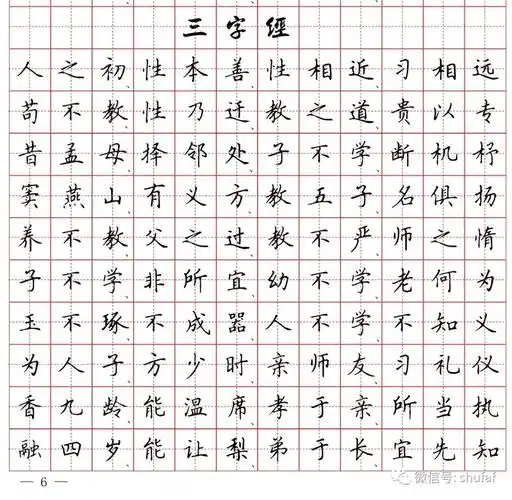 三字經
人之初、性本善、性相近、习相远
苟不教、性乃迁、教之道、贵以专
昔孟母、择邻处、子不学、断机杼
窦燕山、有义方、教五子、名俱扬
养不教、父之过、教不严、师之惰
子不学、非所宜、幼不学、老何为
玉不琢、不成器、人不学、不知义
为人子、方少时、亲师友、习礼仪
香九龄、能温席、孝于亲、所当执
融四岁、能让梨、弟于长、宜先知
— 6 —
微信号: chufaf